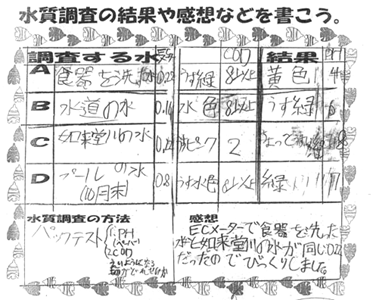 水質調査の結果や感想などを書こう。
調査する水 COD 結果 PH
A 食器を洗 0.22 うす緑 8以上 黄色 4
B 水道の水 0.16 水色 8以上 うす緑 6
C 如来堂川の水 0.22 ピンク 2
D プールの水 0.8 うす水色 8以上 緑 7
(10月末)
水質調査の方法
パックテスト 1.PH
2.COD
感想
ECメーターで食器を洗った
水と如来堂川の水が同じ0.22
だったのでびっくりしました。